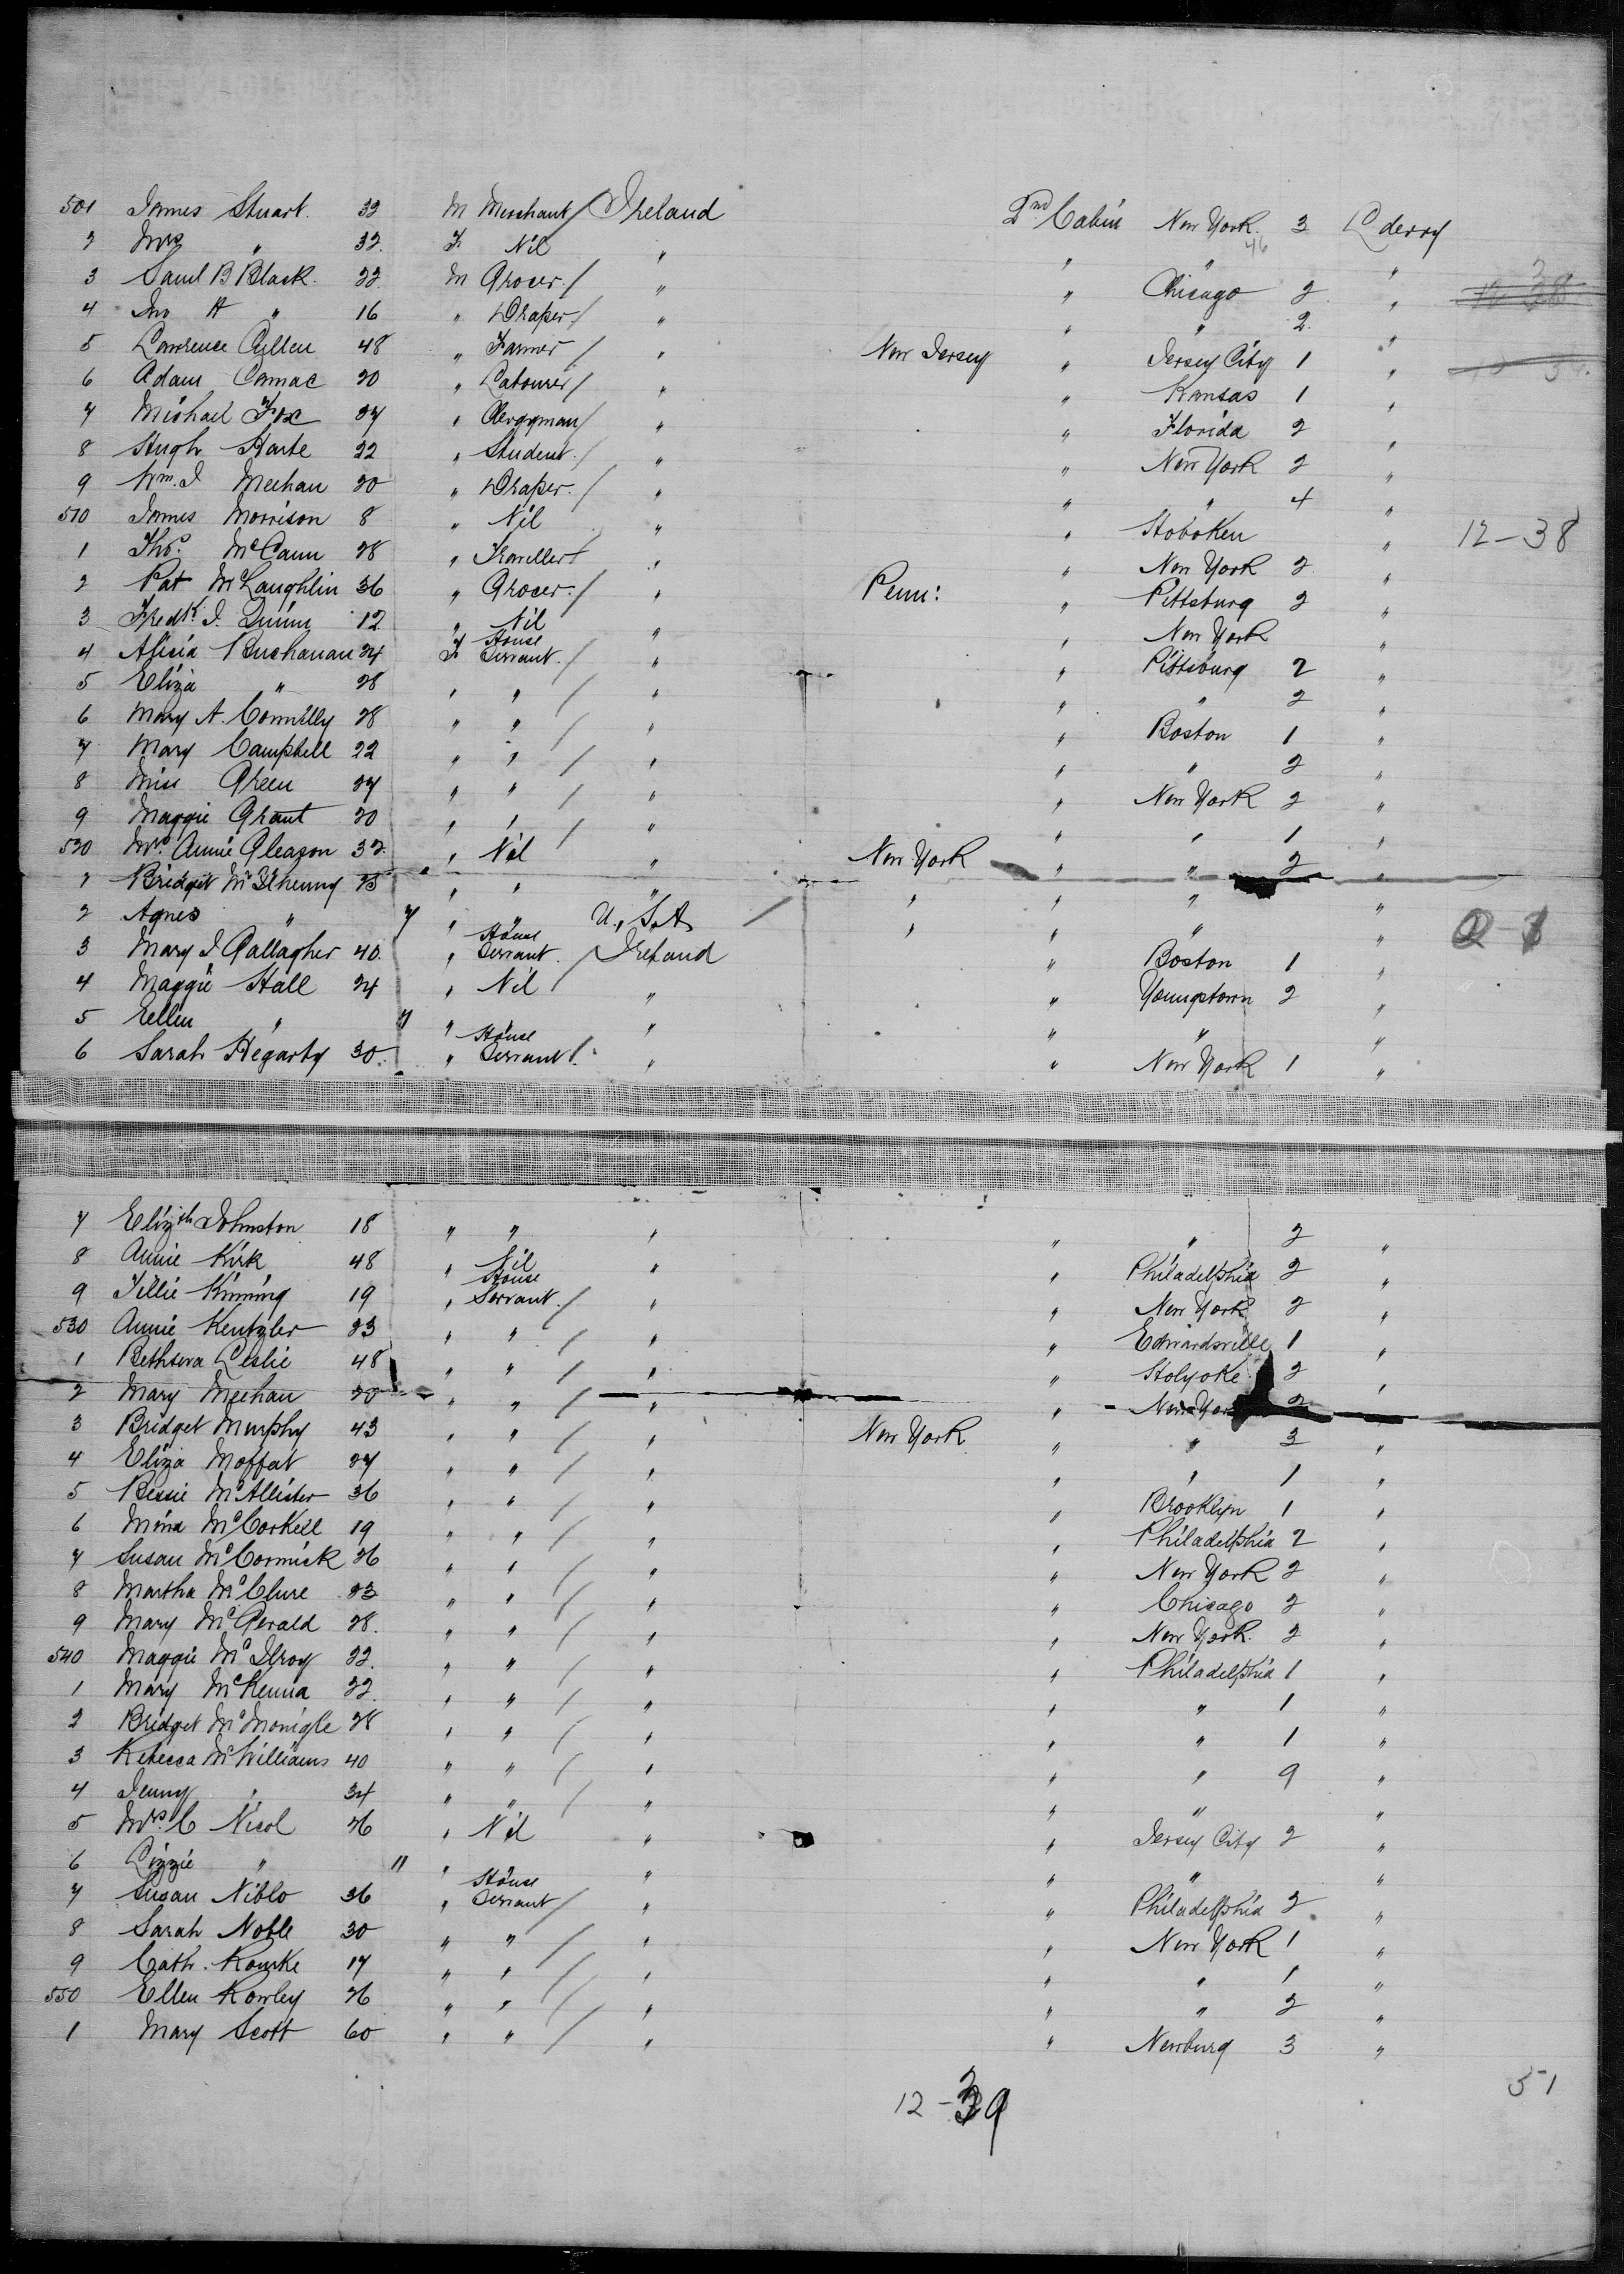 501 James Stuart. 33 M Merchant / Ireland 2nd Cabin New York. 3 L'derry
2 Mrs " 32. F Nil " " " 46 "
3 Saml B Black. 22. M Grocer. / " " Chicago 2 "
4 Jno A " 16 " Draper / " " " 2. "
5 Lawrence Cullen 48 " Farmer / " New Jersey " Jersey City 1 "
6 Adam Camac 20 " Labourer / " " Kansas 1 "
7 Michael Fox 27 " Clergyman / " " Florida 2 "
8 Hugh Harte 22 " Student. / " " New York 2 "
9 Wm. J Meehan 20 " Draper. / " " " 4 "
510 James Morrison 8 " Nil " " Hoboken " 12-38
1 Thos. McCann 28 " Traveller / " " New York 2 "
2 Pat McLaughlin 36 " Grocer. / " Penn: " Pittsburg 2 "
3 Fredk. J. Quinn 12 " Nil " " New York "
4 Alicia Buchanan 24 F House Servant. / " " Pittsburg 2 "
5 Eliza " 28 " " / " " " 2 "
6 Mary A. Connilly 28 " " / " " Boston 1 "
7 Mary Campbell 22 " " / " " " 2 "
8 Miss Green 27 " " / " " New York 2 "
9 Maggie Grant 20 " " / " " " 1 "
520 Mrs. Annie Gleazon 32. " Nil " New York " " 2 "
1 Bridget McIlhenny 25 " " " " " " "
2 Agnes " 7 " " U.S.A / " " " "
3 Mary J Gallagher 40. " House Servant. / Ireland " Boston 1 "
4 Maggie Hall 24 " Nil " " Youngstown 2 "
5 Eellen " 11 " " " " "
6 Sarah Hegarty 30. " House Servant /. " " New York 1 "
7 Elizth Johnston 18 " " " " " 2 "
8 Annie Kirk 48 " Nil " " Philadelphia 2 "
9 Tillie Kinning 19 " House Servant. / " " New York 2 "
530 Annie Kentzler 23 " " / " " Edwardsville 1 "
1 Bethsera Leslie 48 " " / " " Holyoke 2 "
2 Mary Meehan 20 " " / " " New York 2
3 Bridget Murphy 43 " " / " New York " " 3 "
4 Eliza Moffat 27 " " / " " " 1 "
5 Bessie McAllister 36 " " / " " Brooklyn 1 "
6 Mina McCorkell 19 " " / " " Philadelphia 2 "
7 Susan McCormick 26 " " / " " New York 2 "
8 Martha McClure 23 " " / " " Chicago 2 "
9 Mary McGerald 28. " " / " " New York. 2 "
540 Maggie McIlroy 22. " " / " " Philadelphia 1 "
1 Mary McKenna 22. " " / " " " 1 "
2 Bridget McMonigle 28 " " / " " " 1 "
3 Rebecca McWilliams 40 " " / " " " 9 "
4 Jenny " 34 " " / " " " "
5 Mrs. C Nicol 26 " Nil " " Jersey City 2 "
6 Lizzie " 11 " " " " "
7 Susan Niblo 36 " House Servant / " " Philadelphia 2 "
8 Sarah Noble 30 " " / " " New York 1 "
9 Cath. Rourke 17 " " / " " " 1 "
550 Ellen Rowley 26 " " / " " " 2 "
1 Mary Scott 60 " " / " " Newburg 3 "
12-39
51